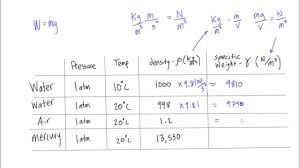 W = mg
Kg/m³ m/s² = N/m³
Kg/m³ = m/V mg/V = N/m³
Pressure Temp density - ρ (kg/m³) specific weight - γ (N/m³)
Water 1 atm 10°C 1000 × 9.81 m/s² = 9810
Water 1 atm 20°C 998 × 9.81 = 9790
Air 1 atm 20°C 1.2 =
Mercury 1 atm 20°C 13,550